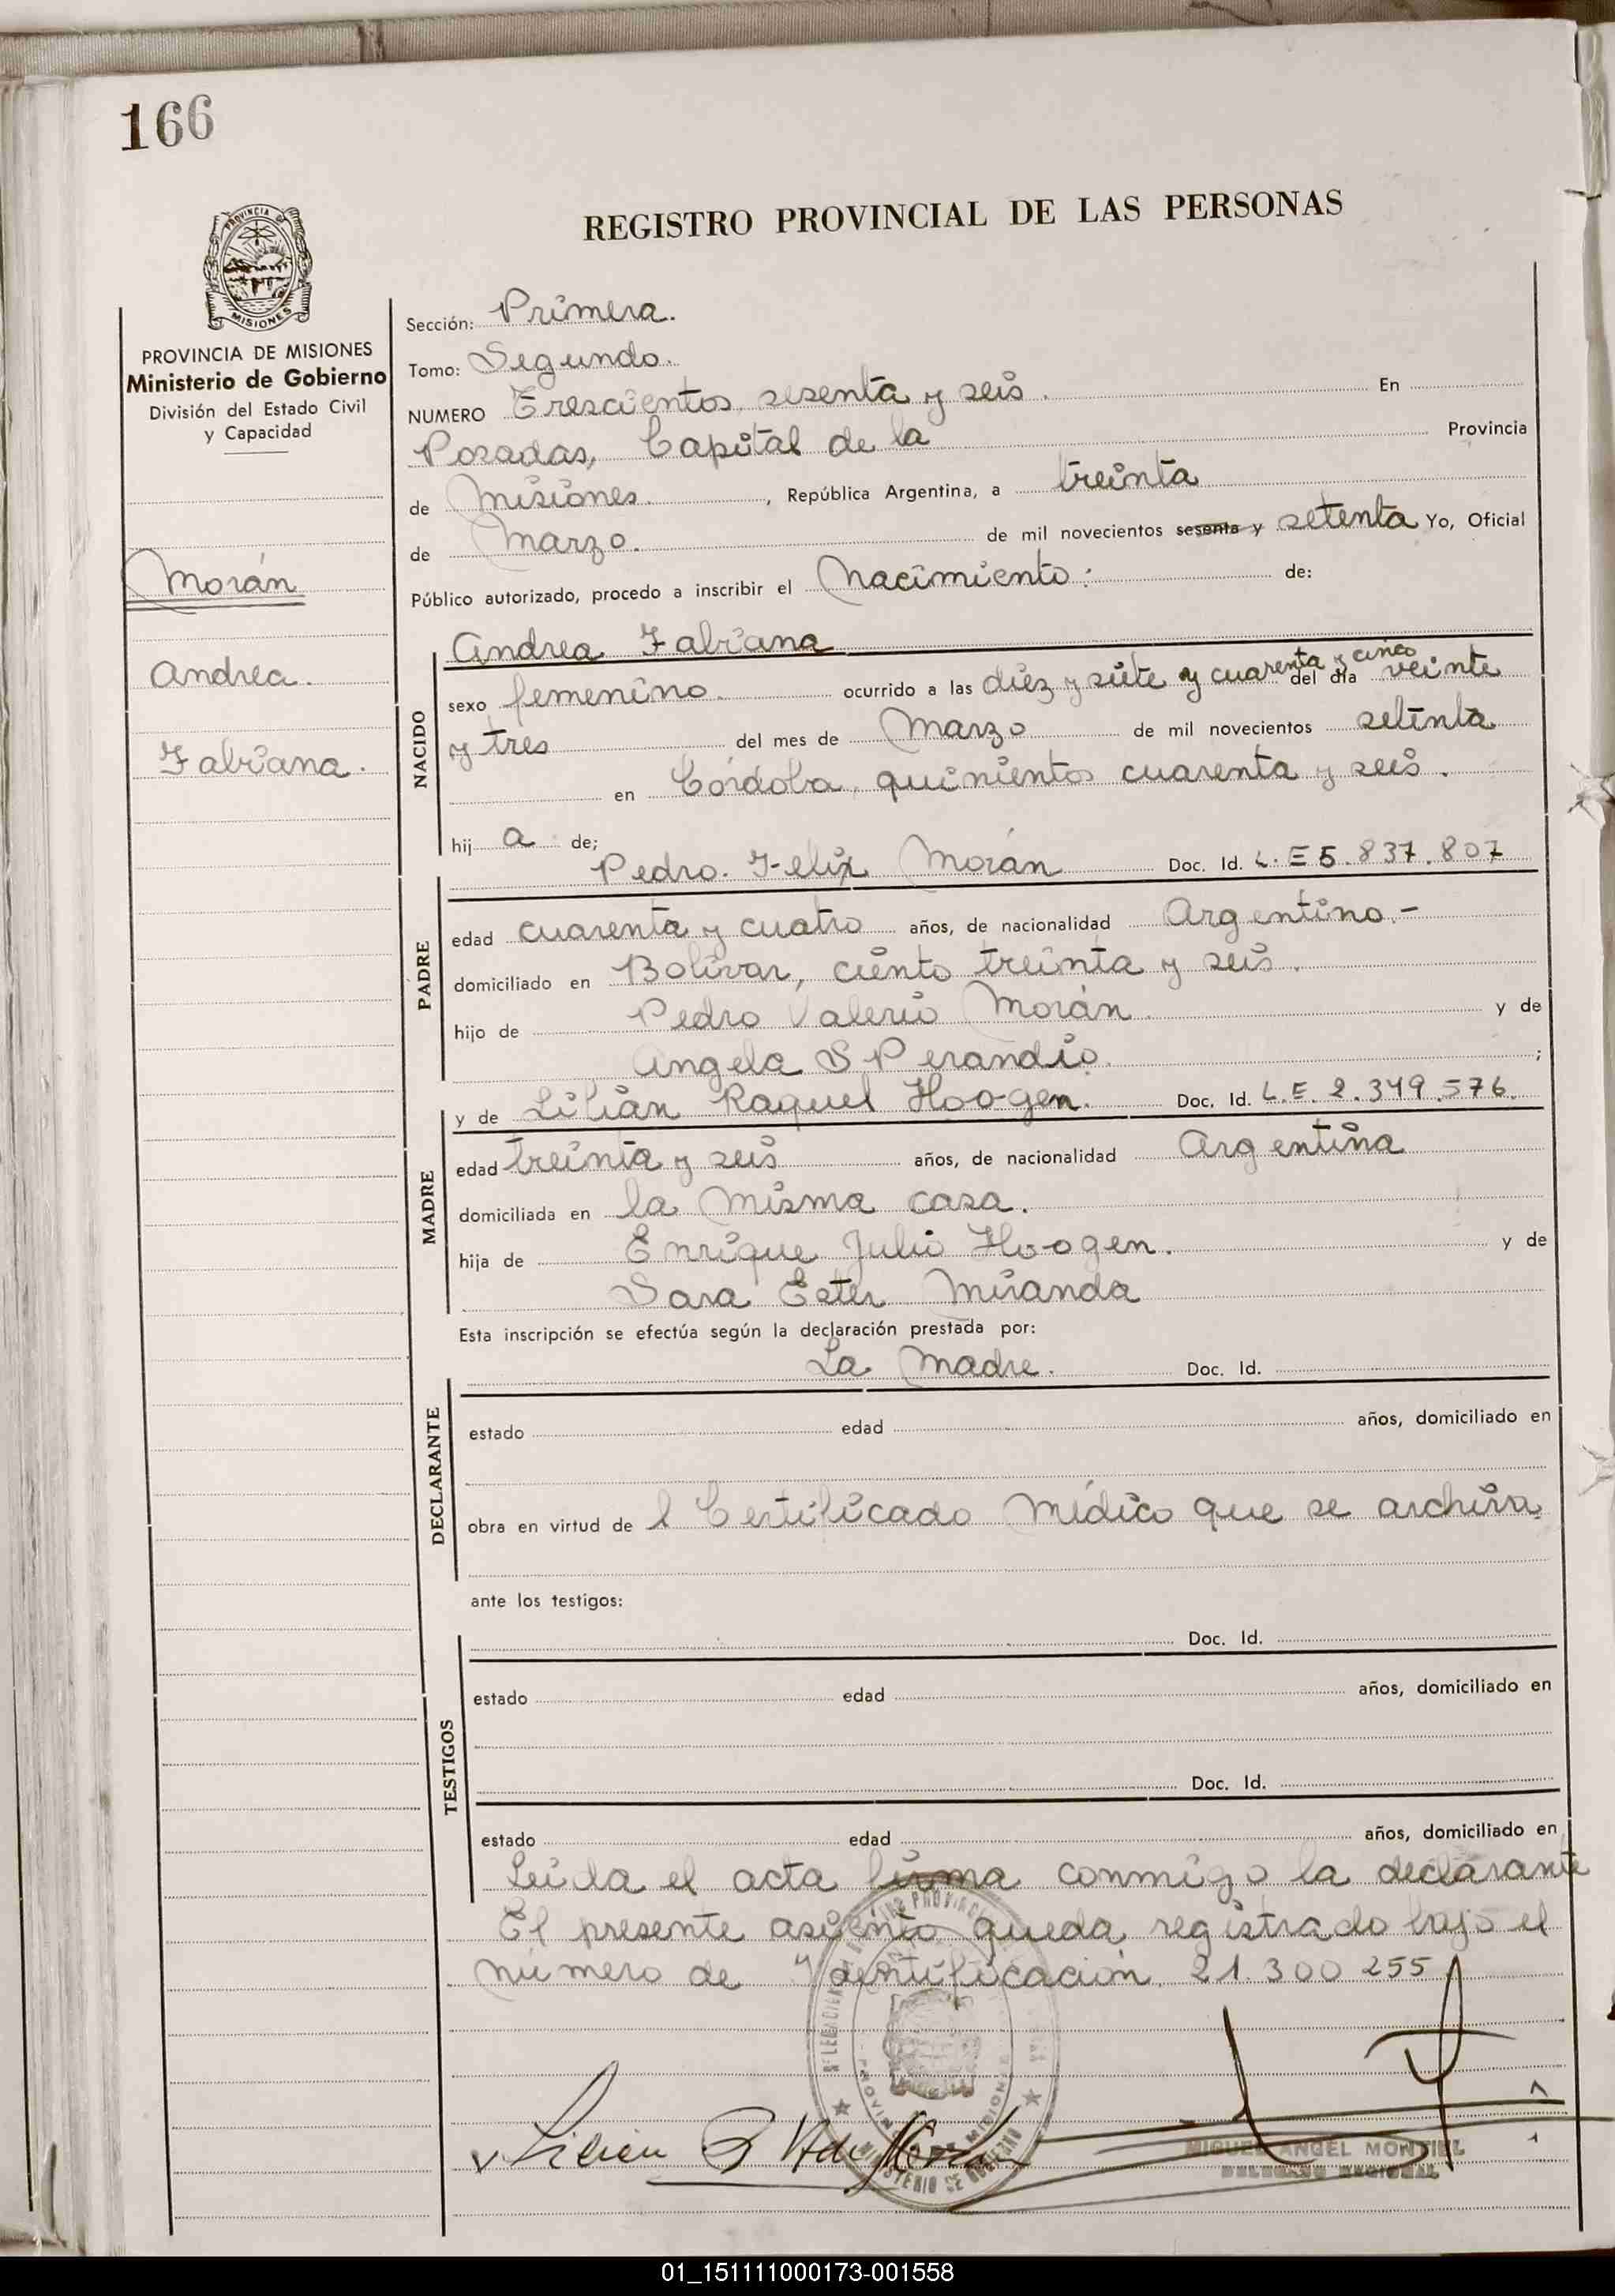 166
REGISTRO PROVINCIAL DE LAS PERSONAS
PROVINCIA DE
MISIONES
PROVINCIA DE MISIONES
Ministerio de Gobierno
División del Estado Civil
y Capacidad
Morán
Andrea.
Fabiana.
Sección: Primera.
Tomo: Segundo.
NUMERO Trescientos sesenta y seis. En
Posadas, Capital de la Provincia
de Misiones. , República Argentina, a treinta
de Marzo. de mil novecientos sesenta y setenta Yo, Oficial
Público autorizado, procedo a inscribir el Nacimiento: de:
Andrea Fabiana
NACIDO
sexo femenino. ocurrido a las diez y siete y cuarenta y cinco del día veinte
y tres del mes de Marzo de mil novecientos setenta
en Córdoba, quinientos cuarenta y seis.
hij a de;
Pedro. Felix Morán Doc. Id. L. E 5.837.807
PADRE
edad cuarenta y cuatro años, de nacionalidad Argentino.-
domiciliado en Bolívar, ciento treinta y seis.
hijo de Pedro Valerio Morán y de
Angela S Perandio. ;
y de Lilián Raquel Hoogen. Doc. Id. L.E. 2.349.576.
MADRE
edad treinta y seis años, de nacionalidad Argentina
domiciliada en la misma casa.
hija de Enrique Julio Hoogen. y de
Sara Ester Miranda
Esta inscripción se efectúa según la declaración prestada por:
La Madre. Doc. Id.
DECLARANTE
estado edad años, domiciliado en
obra en virtud de l Certificado Médico que se archiva.
ante los testigos:
Doc. Id.
TESTIGOS
estado edad años, domiciliado en
Doc. Id.
estado edad años, domiciliado en
Leida el acta firma conmigo la declarante
El presente asiento queda registrado bajo el
número de Identificación 21.300 255
MIGUEL ANGEL MONTIEL
01_151111000173-001558